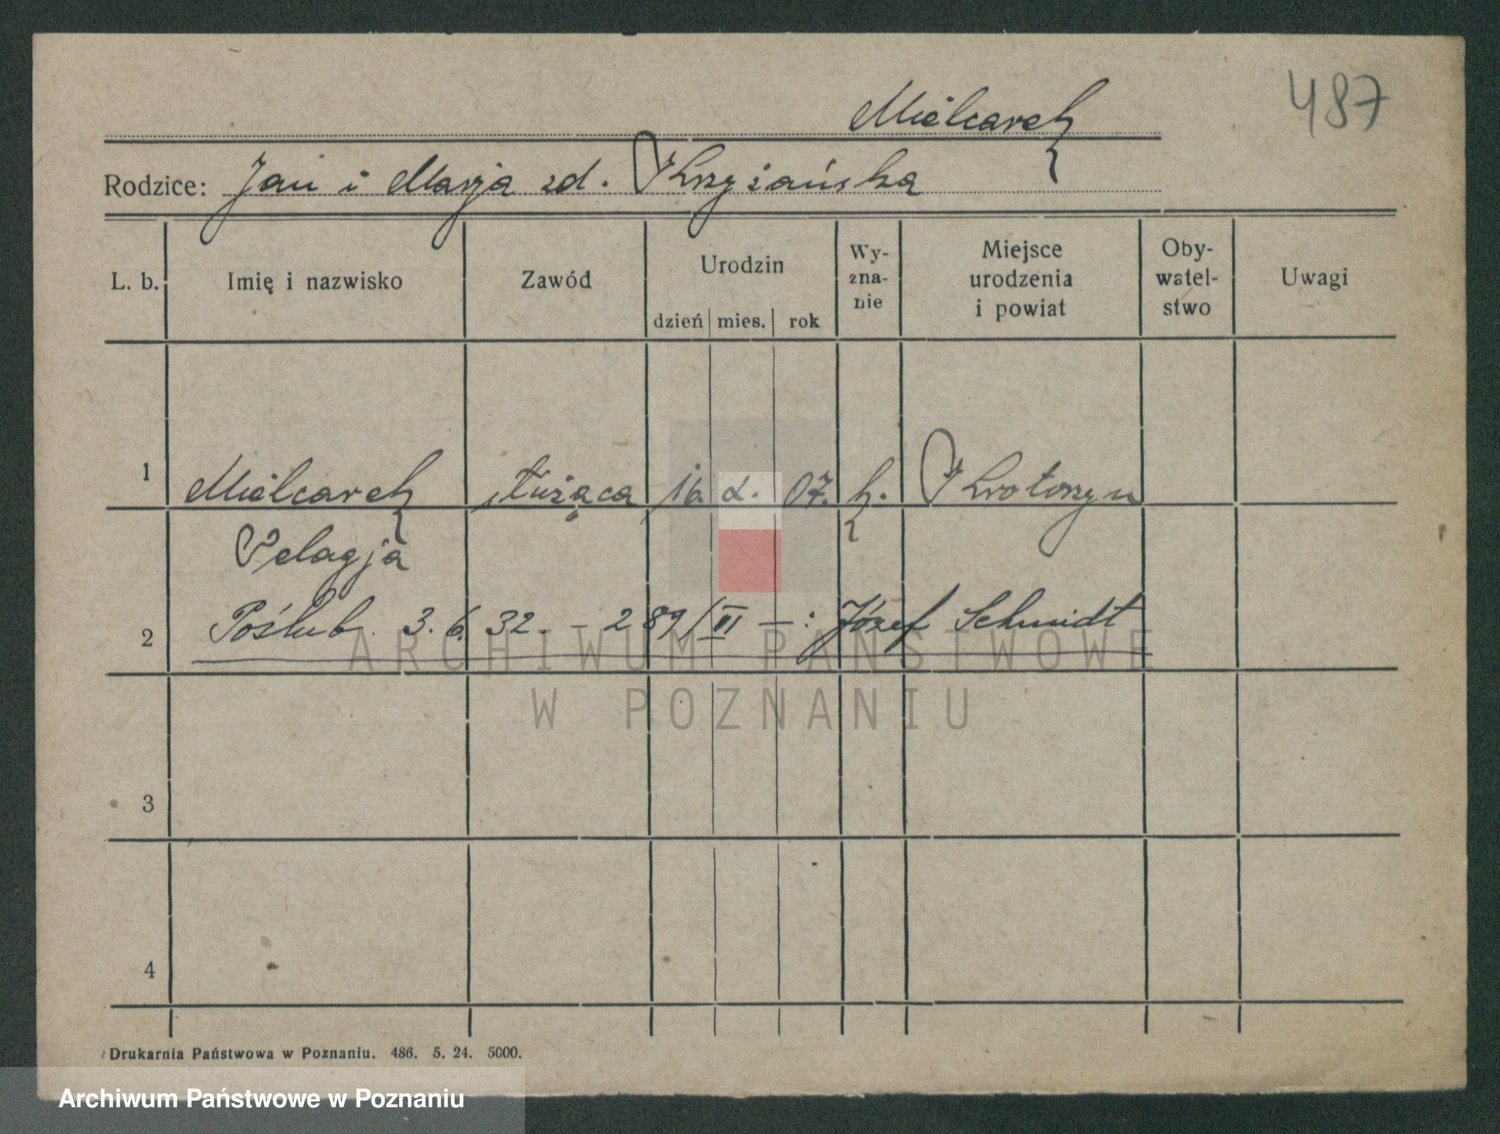 487
Mielcarek
Rodzice: Jan i Marja zd. Krzyżańska
L. b. Imię i nazwisko Zawód Urodzin dzień mies. rok Wy-zna-nie Miejsce urodzenia i powiat Oby-watel-stwo Uwagi
1 Mielcarek służąca 16. 2. 07. k. Krotoszyn
Pelagja
2 Poślub. 3. 6. 32. – 289/III – : Józef Schmidt
ARCHIWUM PAŃSTWOWE
W POZNANIU
3
4
Drukarnia Państwowa w Poznaniu. 486. 5. 24. 5000.
Archiwum Państwowe w Poznaniu